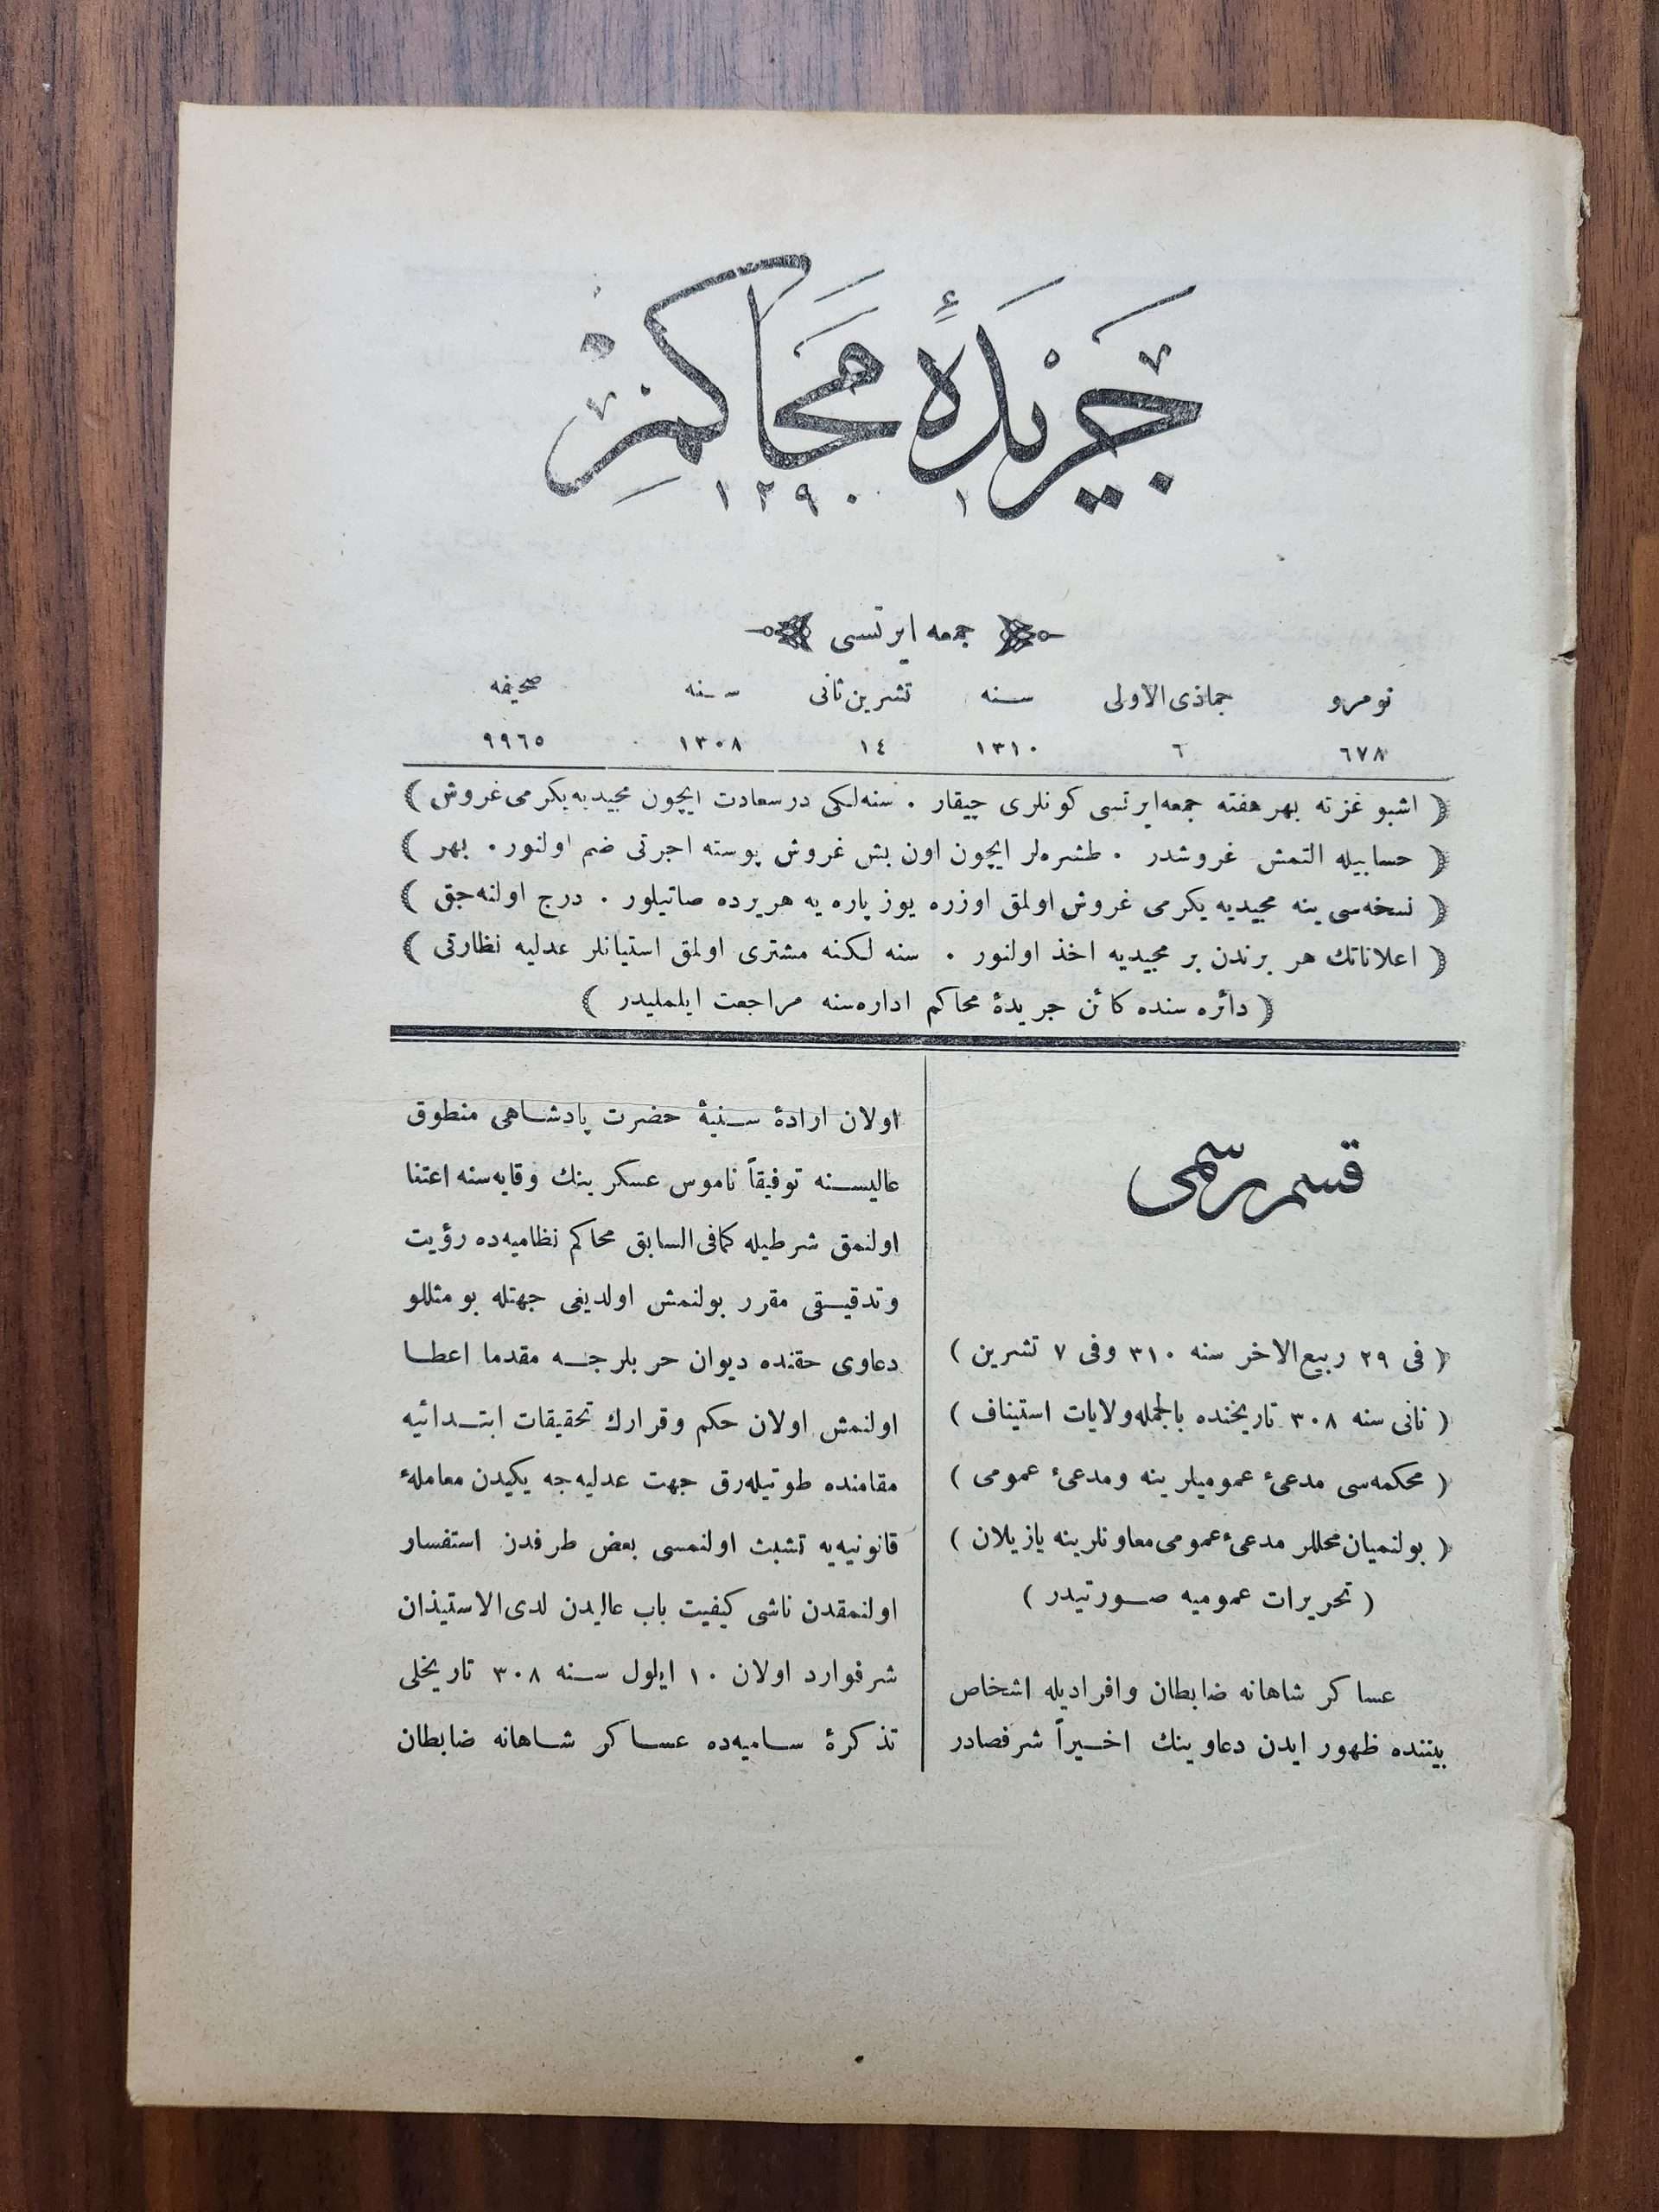 جريدۀ محاكم
١٢٩٠
جمعه ايرتسى
نومرو جماذى الاولى سنه تشرين ثانى سنه صحيفه
٦٧٨ ٦ ١٣١٠ ١٤ ١٣٠٨ ٩٩٦٥
( اشبو غزته بهر هفته جمعه ايرتسى كونلرى چيقار . سنه لكى درسعادت ايچون مجيديه يكرمى غروش )
( حسابيله التمش غروشدر . طشره لر ايچون اون بش غروش پوسته اجرتى ضم اولنور . بهر )
( نسخه سى ينه مجيديه يكرمى غروش اولمق اوزره يوز پاره يه هر يرده صاتيلور . درج اولنه جق )
( اعلاناتك هر برندن بر مجيديه اخذ اولنور . سنه لكنه مشترى اولمق استيانلر عدليه نظارتى )
( دائره سنده كائن جريدۀ محاكم اداره سنه مراجعت ايلمليدر )
قسم رسمى
( فى ٢٩ ربيع الاخر سنه ٣١٠ وفى ٧ تشرين )
( ثانى سنه ٣٠٨ تاريخنده بالجمله ولايات استيناف )
( محكمه سى مدعئ عموميلرينه ومدعئ عمومى )
( بولنميان محللر مدعئ عمومى معاونلرينه يازيلان )
( تحريرات عموميه صورتيدر )
عساكر شاهانه ضابطان وافراديله اشخاص
بيننده ظهور ايدن دعاوينك اخيراً شرفصادر
اولان ارادۀ سنيۀ حضرت پادشاهى منطوق
عاليسنه توفيقاً ناموس عسكرينك وقايه سنه اعتنا
اولنمق شرطيله كمافى السابق محاكم نظاميه ده رؤيت
وتدقيقى مقرر بولنمش اولديغى جهتله بو مثللو
دعاوى حقنده ديوان حربلرجه مقدما اعطا
اولنمش اولان حكم وقرارك تحقيقات ابتدائيه
مقامنده طوتيله رق جهت عدليه جه يكيدن معاملۀ
قانونيه يه تشبث اولنمسى بعض طرفدن استفسار
اولنمقدن ناشى كيفيت باب عاليدن لدى الاستيذان
شرفوارد اولان ١٠ ايلول سنه ٣٠٨ تاريخلى
تذكرۀ ساميه ده عساكر شاهانه ضابطان